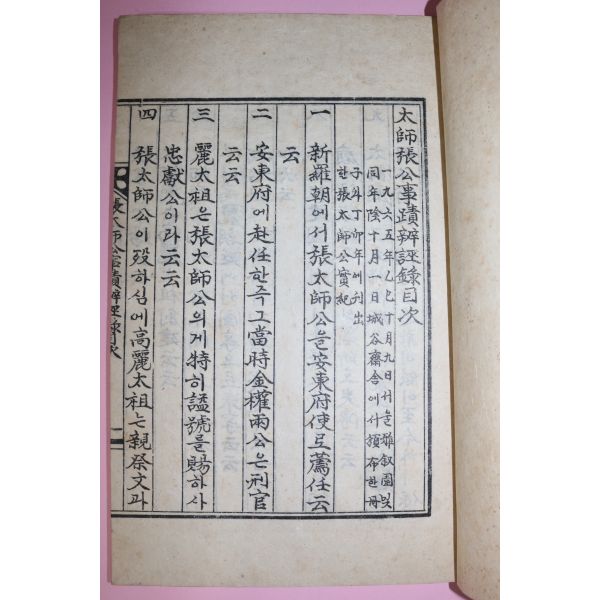 太師張公事蹟辨誣錄目次
一九六五年乙巳十月九日서울雅叙園및
同年陰十月一日城谷齋舍에서頒布한冊
子와丁卯年에刊出
한張太師公實紀
一 新羅朝에서張太師公을安東府使로薦任云
云
二 安東府에赴任한즉그當時金權兩公은刑官
云云
三 麗太祖은張太師公의게特히諡號를賜하사
忠獻公이라云云
四 張太師公이歿하심에高麗太祖는親祭文과
張太師公事蹟辨誣錄目次
一